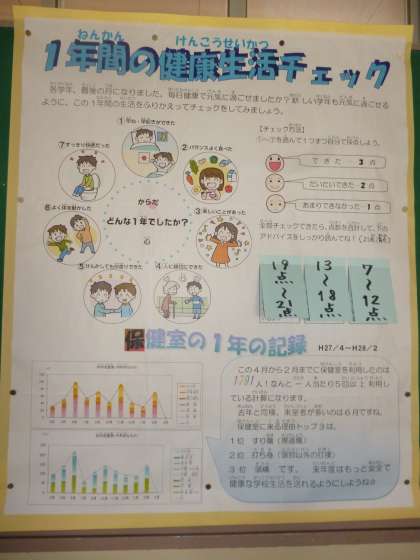 ねんかん けんこうせいかつ
1年間の健康生活チェック
各学年、最後の月になりました。毎日健康で元気に過ごせましたか？新しい学年も元気に過ごせる
ように、この1年間の生活をふりかえってチェックをしてみましょう。
①早ね・早起きができた
⑦すっきり快便だった
②バランスよく食べた
からだ
どんな1年でしたか？
心
③楽しいことがあった
⑥よく体を動かした
⑤けんかしても仲直りできた
④人に親切にできた
【チェック方法】
1～7を読んで1つずつ自分で採点しよう。
できた…3点
だいたいできた…2点
あまりできなかった…1点
全部チェックできたら、点数を合計して、下の
アドバイスをしっかり読んでね！
19点～21点
13点～18点
7～12点
保健室の1年の記録
H27/4～H28/2
この4月から2月までに保健室を利用したのは
1791人！なんと一人当たり5回以上利用し
ている計算になります。
去年と同様、来室者が多いのは6月ですね。
保健室に来る理由トップ3は、
1位 すり傷
2位 打ち身
3位 頭痛 です。来年度はもっと安全で
健康な学校生活を送れるようにしようね